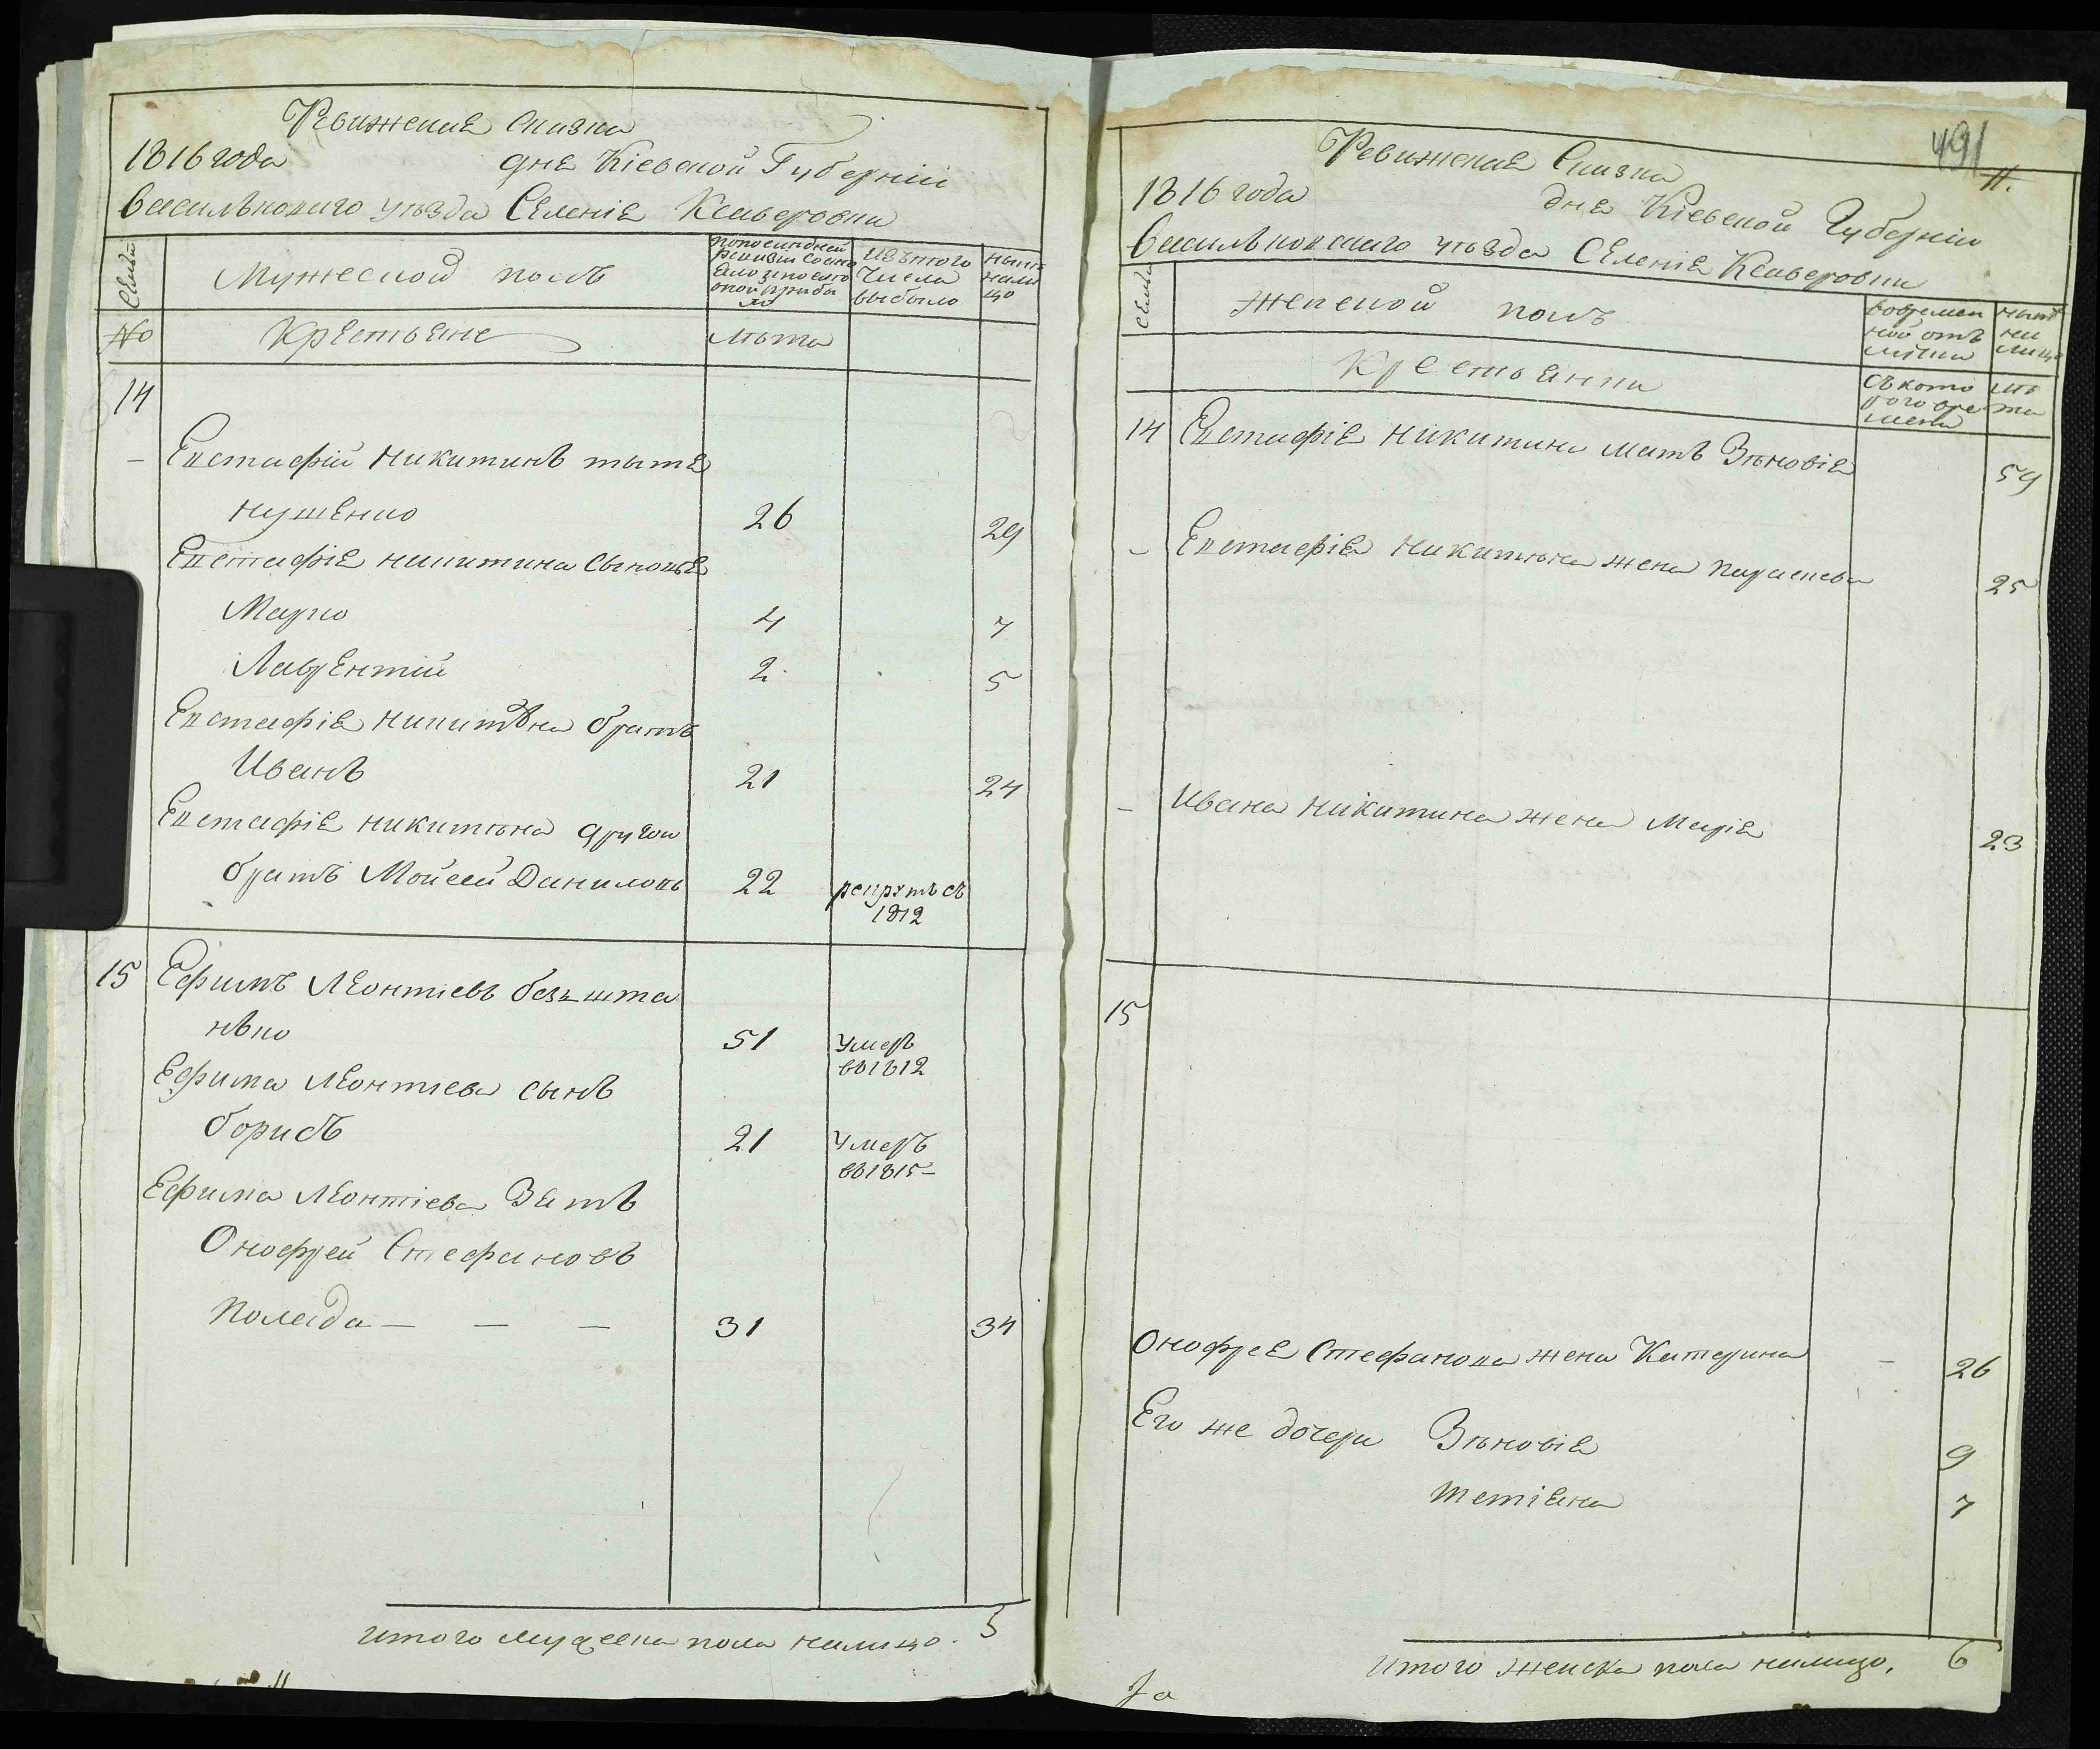 Ревижская Сказка
1816 года дня Кіевской Губерніи
Васильковского уѣзда Селенія Ксаверовки
Семьи
Мужеской полъ
по последней ревизіи состояло и после оной прибыло
изътого числа выбыло
нынѣ налицо
№
Крестьяне
лѣта
14
Евстафій Никитинъ
нушенко 26 29
Евстафія Никитина сыновья
Марко 4 7
Лаврентій 2 5
Евстафія Никитѣна братъ
Иванъ 21 24
Евстафія Никитѣна другой
братъ Мойсей Даниловъ 22 рекрутъ съ 1812
15 Ефимъ Леонтіевъ безъшта
нько 51 умеръ
въ 1812
Ефима Леонтіева сынъ
борисъ 21 Умеръ
въ 1815
Ефима Леонтіева Зять
Онофрей Стефановъ
Поляда — — — 31 34
Итого мужеска пола налицо. 5
491
11.
Ревижская Сказка
1816 года дня Кіевской Губерніи
Васильковскаго уѣзда Селенія Ксаверовки
Семьи
Женской полъ
вовремен
ной отъ
лучки
нынѣ
на
лицо
Крестьянки
съ кото
рого вре
мени
лѣ
та
14 Евстафія Никитина мать Зѣновія 59
Евстафія Никитѣна жена Параскева 25
Ивана Никитина жена Марія 23
15
Онофрея Стефанова жена Катерина 26
Его же дочери Зѣновія 9
Тетіяна 7
Итого женска пола налицо. 6